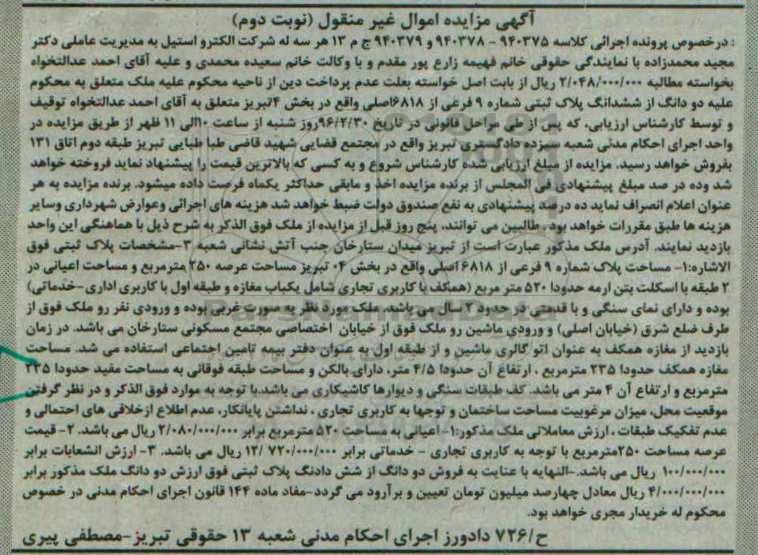 آگهی مزایده اموال غیر منقول (نوبت دوم)
: درخصوص پرونده اجرائی کلاسه ۹۴۰۳۷۵ - ۹۴۰۳۷۸ و ۹۴۰۳۷۹ ج م ۱۳ هر سه له شرکت الکترو استیل به مدیریت عاملی دکتر
مجید محمدزاده با نمایندگی حقوقی خانم فهیمه زارع پور مقدم و با وکالت خانم سعیده محمدی و علیه آقای احمد عدالتخواه
بخواسته مطالبه ۲/۰۴۸/۰۰۰/۰۰۰ ریال از بابت اصل خواسته بعلت عدم پرداخت دین از ناحیه محکوم علیه ملک متعلق به محکوم
علیه دو دانگ از ششدانگ پلاک ثبتی شماره ۹ فرعی از ۶۸۱۸اصلی واقع در بخش ۴تبریز متعلق به آقای احمد عدالتخواه توقیف
و توسط کارشناس ارزیابی، که پس از طی مراحل قانونی در تاریخ ۹۶/۲/۳۰روز شنبه از ساعت ۱۰الی ۱۱ ظهر از طریق مزایده در
واحد اجرای احکام مدنی شعبه سیزده دادگستری تبریز واقع در مجتمع قضایی شهید قاضی طبا طبایی تبریز طبقه دوم اتاق ۱۳۱
بفروش خواهد رسید. مزایده از مبلغ ارزیابی شده کارشناس شروع و به کسی که بالاترین قیمت را پیشنهاد نماید فروخته خواهد
شد وده در صد مبلغ پیشنهادی فی المجلس از برنده مزایده اخذ و مابقی حداکثر یکماه فرصت داده میشود. برنده مزایده به هر
عنوان اعلام انصراف نماید ده درصد پیشنهادی به نفع صندوق دولت ضبط خواهد شد هزینه های اجرائی وعوارض شهرداری وسایر
هزینه ها طبق مقررات خواهد بود. طالبین می توانند، پنج روز قبل از مزایده از ملک فوق الذکر به شرح ذیل با هماهنگی این واحد
بازدید نمایند. آدرس ملک مذکور عبارت است از تبریز میدان ستارخان جنب آتش نشانی شعبه ۳-مشخصات پلاک ثبتی فوق
الاشاره:۱- مساحت پلاک شماره ۹ فرعی از ۶۸۱۸ اصلی واقع در بخش ۰۴ تبریز مساحت عرصه ۲۵۰ مترمربع و مساحت اعیانی در
۲ طبقه با اسکلت بتن ارمه حدودا ۵۲۰ متر مربع (همکف با کاربری تجاری شامل یکباب مغازه و طبقه اول با کاربری اداری-خدماتی)
بوده و دارای نمای سنگی و با قدمتی در حدود ۲ سال می باشد. ملک مورد نظر به صورت غربی بوده و ورودی نفر رو ملک فوق از
طرف ضلع شرق (خیابان اصلی) و ورودی ماشین رو ملک فوق از خیابان اختصاصی مجتمع مسکونی ستارخان می باشد. در زمان
بازدید از مغازه همکف به عنوان اتو گالری ماشین و از طبقه اول به عنوان دفتر بیمه تامین اجتماعی استفاده می شد. مساحت
مغازه همکف حدودا ۲۳۵ مترمربع ، ارتفاع آن حدودا ۴/۵ متر، دارای بالکن و مساحت طبقه فوقانی به مساحت مفید حدودا ۲۳۵
مترمربع و ارتفاع آن ۴ متر می باشد. کف طبقات سنگی و دیوارها کاشیکاری می باشد.با توجه به موارد فوق الذکر و در نظر گرفتن
موقعیت محل، میزان مرغوبیت مساحت ساختمان و توجها به کاربری تجاری ، نداشتن پایانکار، عدم اطلاع ازخلافی های احتمالی و
عدم تفکیک طبقات ، ارزش معاملاتی ملک مذکور:۱- اعیانی به مساحت ۵۲۰ مترمربع برابر ۲/۰۸۰/۰۰۰/۰۰۰ ریال می باشد. ۲- قیمت
عرصه مساحت ۲۵۰مترمربع با توجه به کاربری تجاری - خدماتی برابر ۱۲/ ۷۲۰/۰۰۰/۰۰۰ ریال می باشد. ۳- ارزش انشعابات برابر
۱۰۰/۰۰۰/۰۰۰ ریال می باشد.-النهایه با عنایت به فروش دو دانگ از شش دادنگ پلاک ثبتی فوق ارزش دو دانگ ملک مذکور برابر
۴/۰۰۰/۰۰۰/۰۰۰ ریال معادل چهارصد میلیون تومان تعیین و برآورد می گردد-مفاد ماده ۱۴۴ قانون اجرای احکام مدنی در خصوص
محکوم له خریدار مجری خواهد بود.
ح/۷۲۶ دادورز اجرای احکام مدنی شعبه ۱۳ حقوقی تبریز-مصطفی پیری